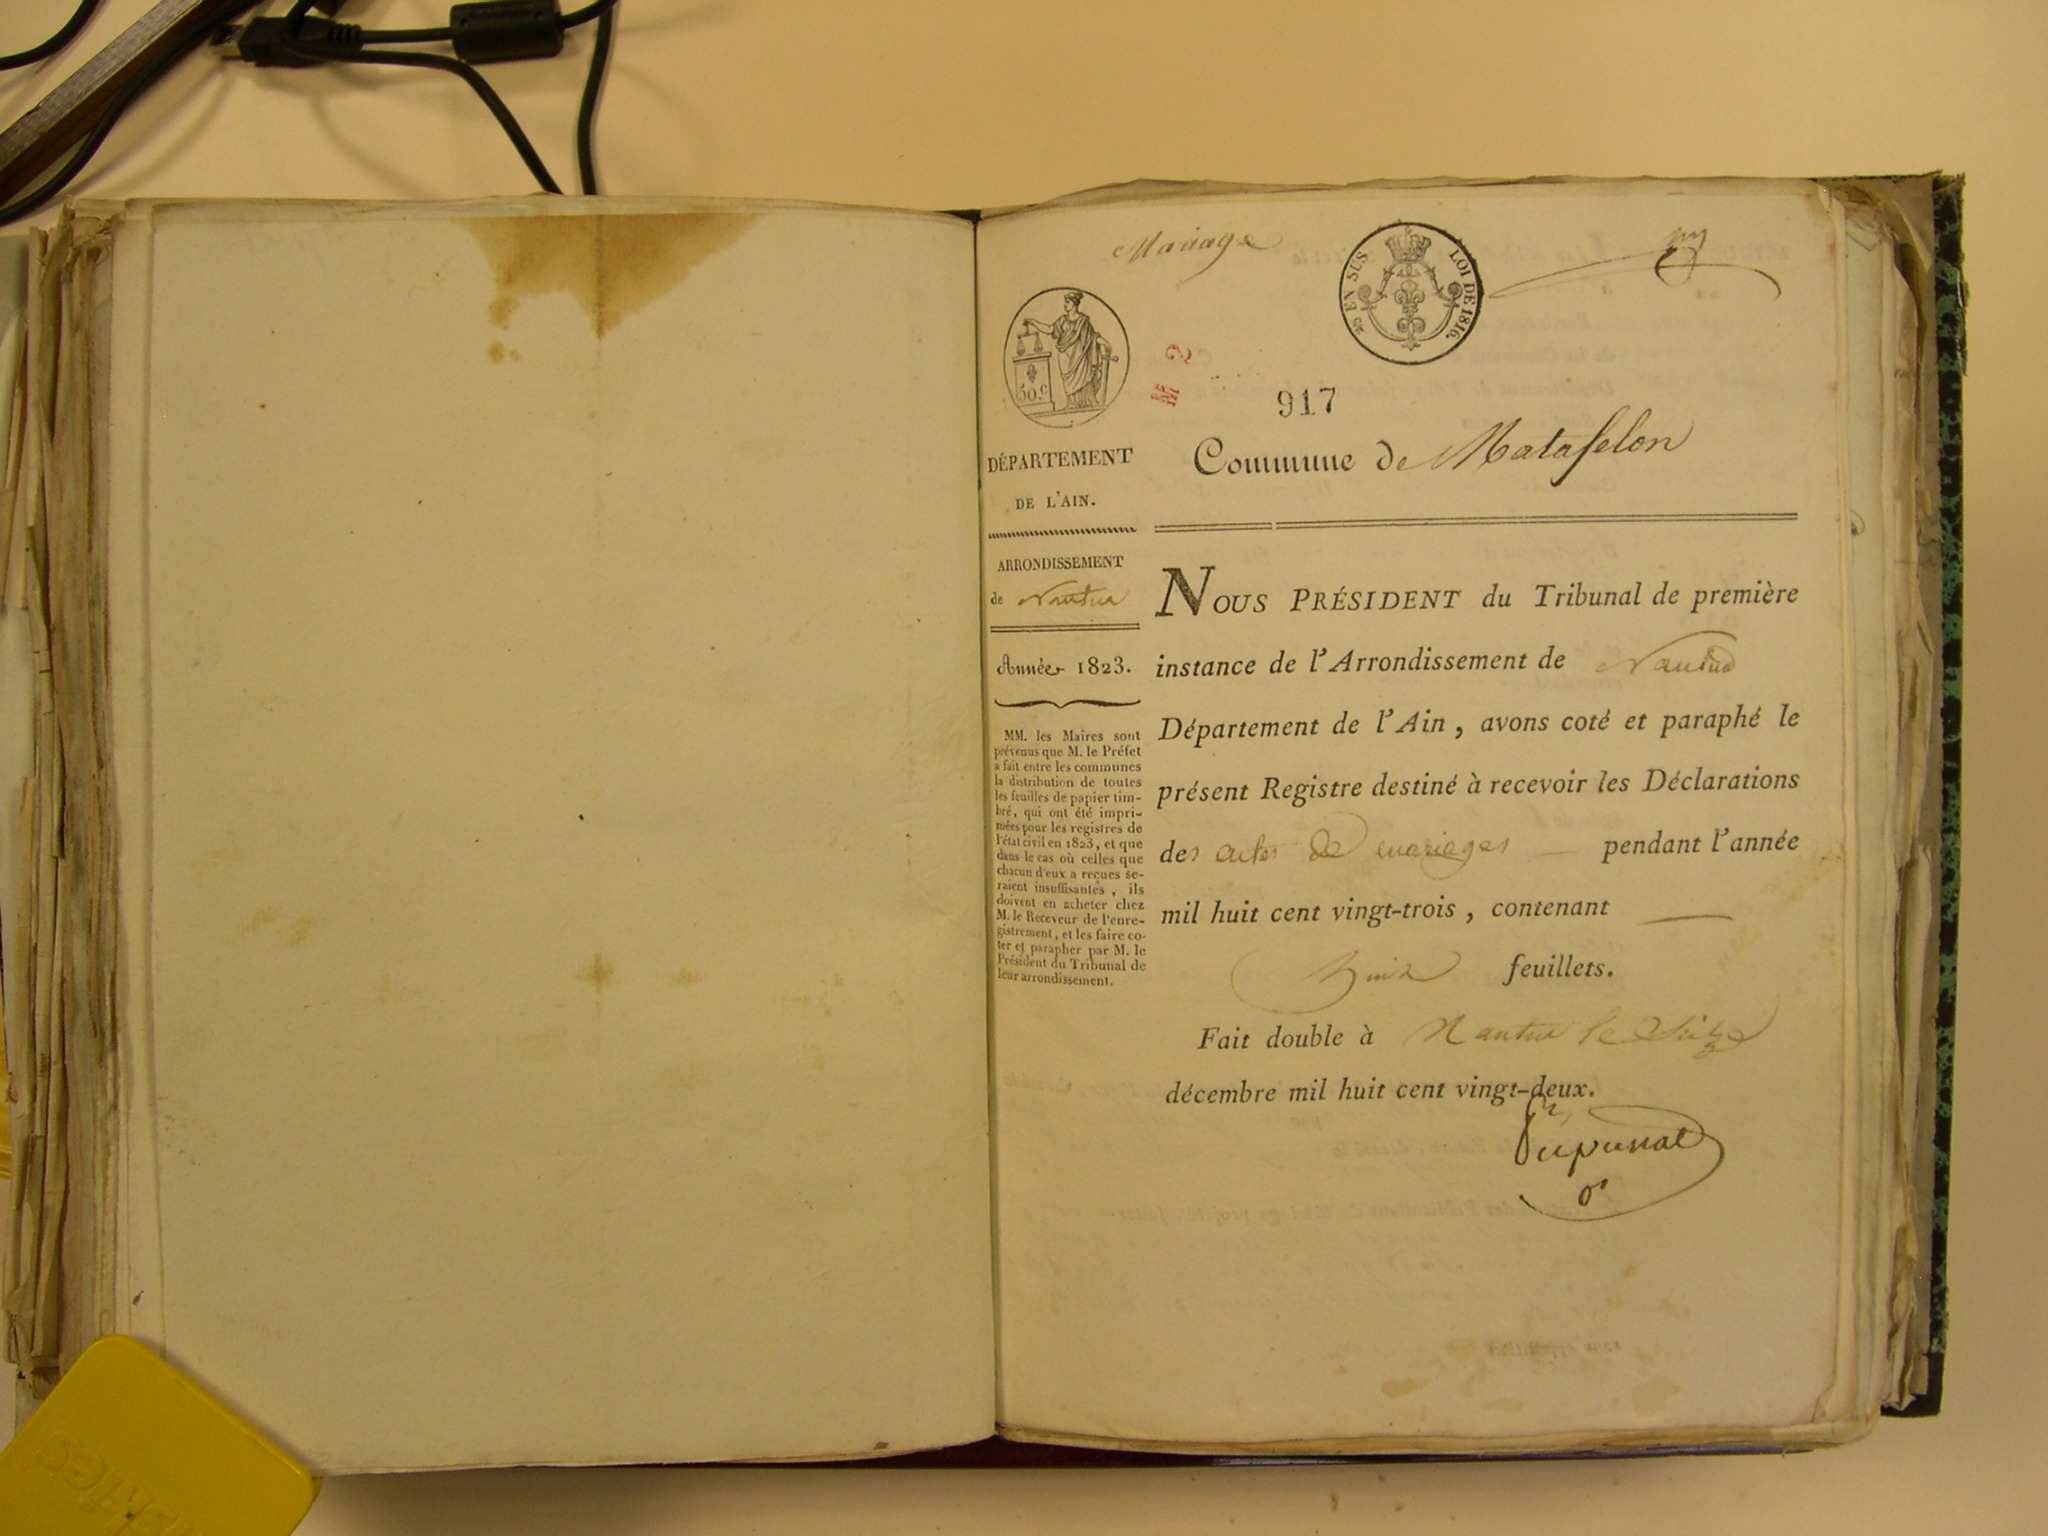 Mariage
25 EN SUS LOI DE 1816.
50.c
M 2
917
DÉPARTEMENT
DE L'AIN.
Commune de Matafelon
ARRONDISSEMENT
de Nantua
Année 1823.
MM. les Maires sont
prévenus que M. le Préfet
a fait entre les communes
la distribution de toutes
les feuilles de papier tim-
bré, qui ont été impri-
mées pour les registres de
l'état civil en 1823, et que
dans le cas où celles que
chacun d'eux a reçues se-
raient insuffisantes, ils
doivent en acheter chez
M. le Receveur de l'enre-
gistrement, et les faire co-
ter et parapher par M. le
Président du Tribunal de
leur arrondissement.
NOUS PRÉSIDENT du Tribunal de première
instance de l'Arrondissement de Nantua
Département de l'Ain, avons coté et paraphé le
présent Registre destiné à recevoir les Déclarations
des actes de mariages pendant l'année
mil huit cent vingt-trois, contenant
huit feuillets.
Fait double à Nantua le
décembre mil huit cent vingt-deux.